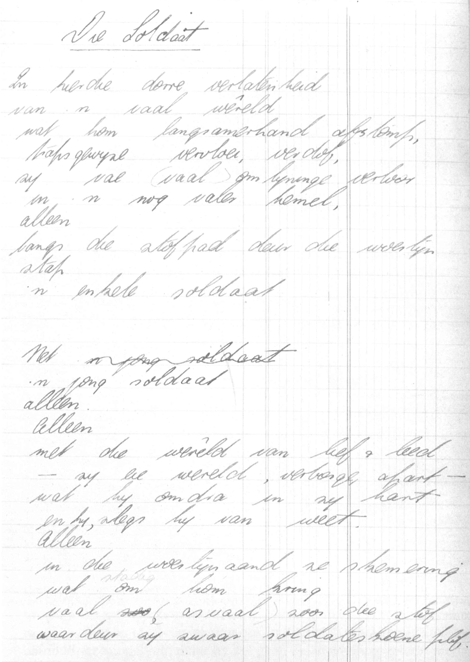 Die Soldaat
In hierdie dorre verlatenheid
van 'n vaal wêreld
wat hom langsamerhand afstomp,
trapsgewyse vervloei, verdof,
sy vae (vaal) omlyninge verloor
in 'n nog valer hemel,
alleen
langs die stofpad deur die woestyn
stap
'n enkele soldaat
Net 'n jong soldaat
'n jong soldaat
alleen.
Alleen
met die wêreld van lief & leed
— sy eie wereld, verborge, apart —
wat hy omdra in sy hart
en hy, slegs hy van weet.
Alleen
in die woestynaand se skemering
wat om hom kring
vaal (asvaal) soos die stof
waardeur sy swaar soldateskoene plof